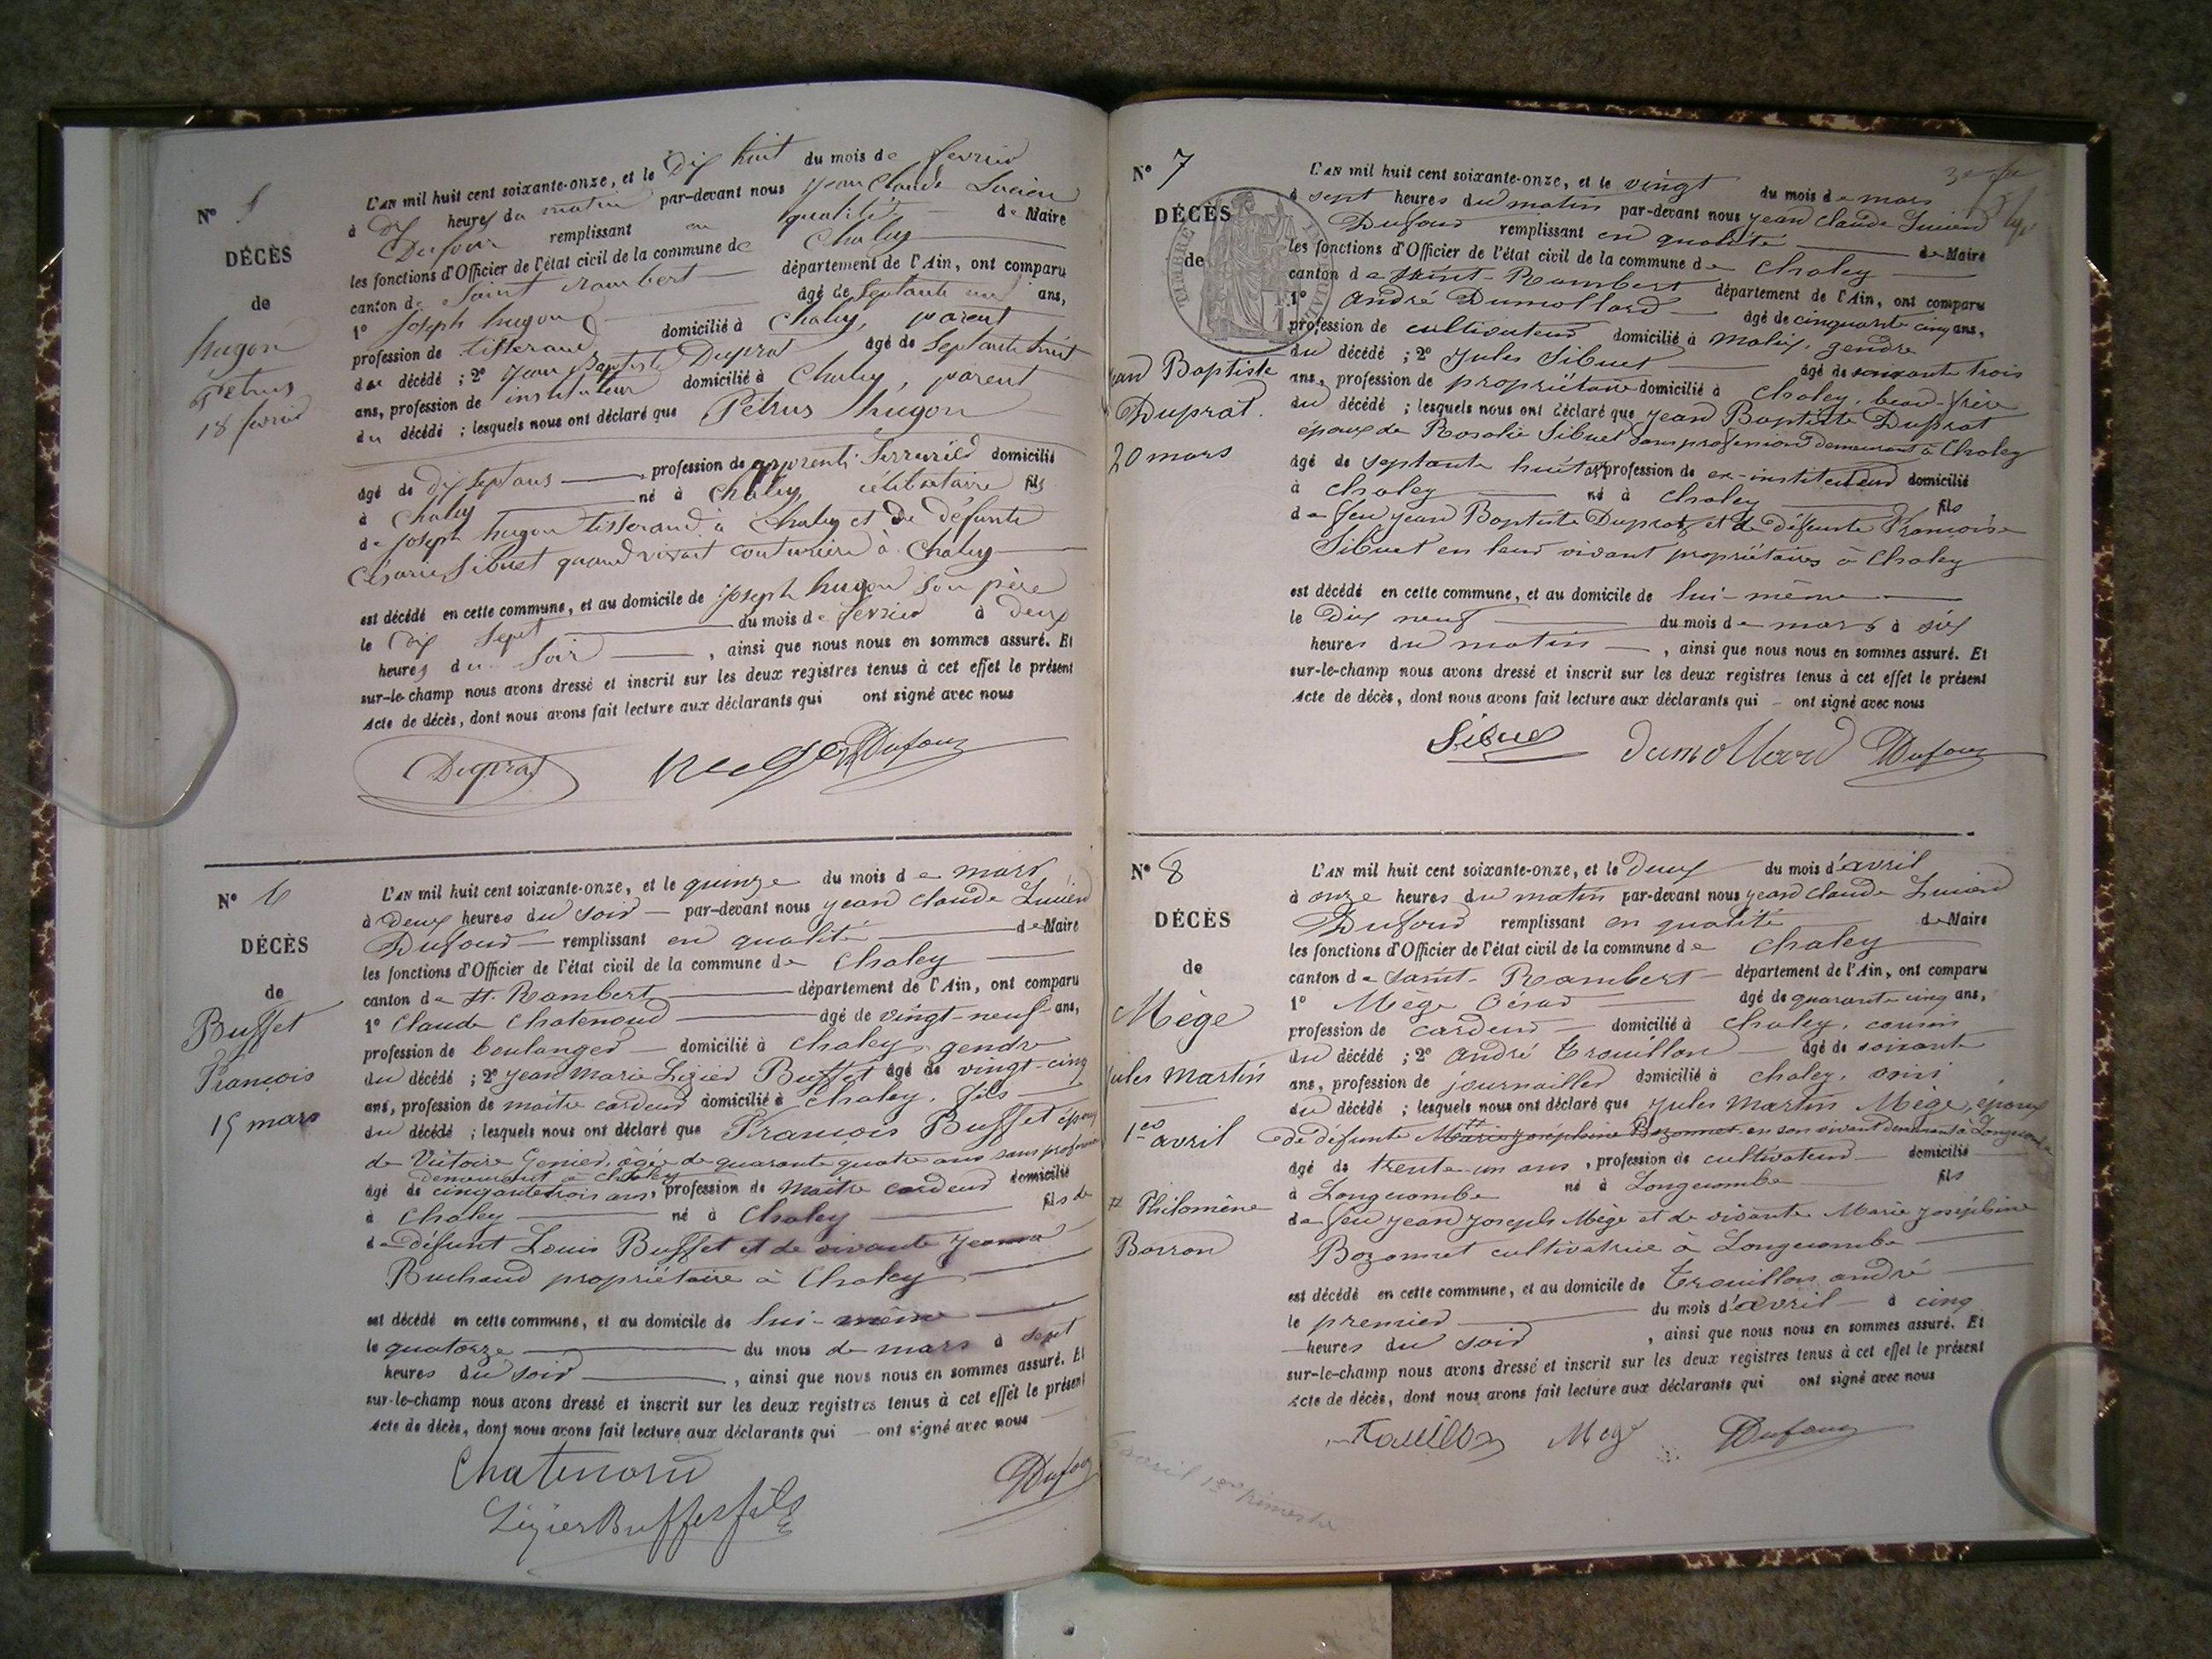 N° 5
DÉCÈS
de
hugon
Petrus
18 fevrier
L'AN mil huit cent soixante-onze, et le Dix huit du mois de fevrier
à dix heures du matin par-devant nous jean Claude Lucien
Dufour remplissant en qualité de Maire
les fonctions d'Officier de l'état civil de la commune de Chaley
canton de Saint Rambert département de l'Ain, ont comparu
1° Joseph hugon âgé de Septante un ans,
profession de tisserand domicilié à Chaley, parent
du décédé ; 2° jean Baptiste Duprat âgé de Septante huit
ans, profession de instituteur domicilié à Chaley, parent
du décédé ; lesquels nous ont déclaré que Petrus hugon
âgé de dix sept ans profession de apprenti Serrurier domicilié
à Chaley né à Chaley célibataire fils
de joseph hugon tisserand à Chaley et de défunte
Césarie Sibuet quand vivait couturière à Chaley
est décédé en cette commune, et au domicile de joseph hugon son père
le dix sept du mois de fevrier à deux
heures du soir , ainsi que nous nous en sommes assuré. Et
sur-le-champ nous avons dressé et inscrit sur les deux registres tenus à cet effet le présent
Acte de décès, dont nous avons fait lecture aux déclarants qui ont signé avec nous
Duprat Dufour
N° 6
DÉCÈS
de
Buffet
Francois
15 mars
L'AN mil huit cent soixante-onze, et le quinze du mois de mars
à Deux heures du soir par-devant nous jean claude Lucien
Dufour remplissant en qualité de Maire
les fonctions d'Officier de l'état civil de la commune de Chaley
canton de St. Rambert département de l'Ain, ont comparu
1° Claude Chatenoud âgé de vingt-neuf ans,
profession de boulanger domicilié à Chaley, gendre
du décédé ; 2° jean Marie Ligier Buffet âgé de vingt-cinq
ans, profession de maitre cardeur domicilié à Chaley, fils
du décédé ; lesquels nous ont déclaré que Francois Buffet époux
de Victoire Genier, âgée de quarante quatre ans sans profession
demeurant à Chaley
âgé de cinquante trois ans, profession de maitre cardeur domicilié
à Chaley né à Chaley fils de
de défunt Louis Buffet et de vivante jeanne
Buchaud propriétaire à Chaley
est décédé en cette commune, et au domicile de lui-même
le quatorze du mois de mars à sept
heures du soir , ainsi que nous nous en sommes assuré. Et
sur-le-champ nous avons dressé et inscrit sur les deux registres tenus à cet effet le présent
Acte de décès, dont nous avons fait lecture aux déclarants qui ont signé avec nous
Chatenoud
Dufour
Ligier Buffet fils
N° 7
DÉCÈS
de
Jean Baptiste
Duprat.
20 mars
L'AN mil huit cent soixante-onze, et le vingt du mois de mars
à sept heures du matin par-devant nous jean claude Lucien
Dufour remplissant en qualité de Maire
les fonctions d'Officier de l'état civil de la commune de Chaley
canton de Saint-Rambert département de l'Ain, ont comparu
1° André Dumollard âgé de cinquante cinq ans,
profession de cultivateur domicilié à Molix, gendre
du décédé ; 2° jules Sibuet âgé de soixante trois
ans, profession de propriétaire domicilié à Chaley, beau-frère
du décédé ; lesquels nous ont déclaré que jean Baptiste Duprat
époux de Rosalie Sibuet sans profession demeurant à Chaley
âgé de septante huit ans profession de ex-instituteur domicilié
à Chaley né à Chaley fils
de feu jean Baptiste Duprat et de défunte Françoise
Sibuet en leur vivant propriétaires à Chaley
est décédé en cette commune, et au domicile de lui-même
le Dix neuf du mois de mars à six
heures du matin , ainsi que nous nous en sommes assuré. Et
sur-le-champ nous avons dressé et inscrit sur les deux registres tenus à cet effet le présent
Acte de décès, dont nous avons fait lecture aux déclarants qui ont signé avec nous
Sibuet dumollard Dufour
N° 8
DÉCÈS
de
Mège
jules Martin
1er avril
# Philomène
Borron
L'AN mil huit cent soixante-onze, et le Deux du mois d'avril
à onze heures du matin par-devant nous jean claude Lucien
Dufour remplissant en qualité de Maire
les fonctions d'Officier de l'état civil de la commune de Chaley
canton de Saint-Rambert département de l'Ain, ont comparu
1° Mège César âgé de quarante cinq ans,
profession de cardeur domicilié à Chaley, cousin
du décédé ; 2° andré trouillon âgé de soixante
ans, profession de journailler domicilié à Chaley, ami
du décédé ; lesquels nous ont déclaré que jules Martin Mège, époux
de défunte Marie joséphine Bozonnet en son vivant demeurant à Longecombe
âgé de trente-un ans, profession de cultivateur domicilié
à Longecombe né à Longecombe fils
de feu jean joseph Mège et de vivante Marie joséphine
Bozonnet cultivatrice à Longecombe
est décédé en cette commune, et au domicile de trouillon andré
le premier du mois d'avril à cinq
heures du soir , ainsi que nous nous en sommes assuré. Et
sur-le-champ nous avons dressé et inscrit sur les deux registres tenus à cet effet le présent
Acte de décès, dont nous avons fait lecture aux déclarants qui ont signé avec nous
Trouillon Mège Dufour